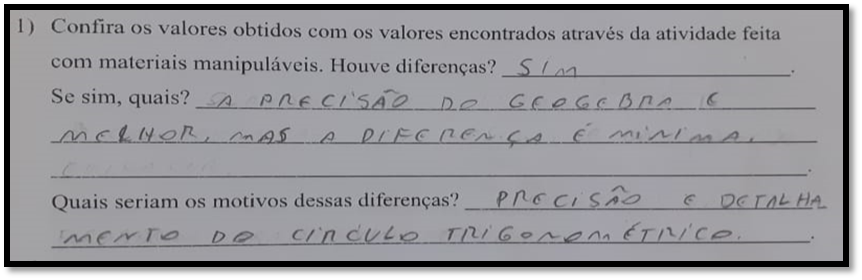 1) Confira os valores obtidos com os valores encontrados através da atividade feita
com materiais manipuláveis. Houve diferenças? SIM.
Se sim, quais? A PRECISÃO DO GEOGEBRA E
MELHOR, MAS A DIFERENÇA É MINIMA.
Quais seriam os motivos dessas diferenças? PRECISÃO E DETALHA
MENTO DO CIRCULO TRIGONOMÉTRICO.